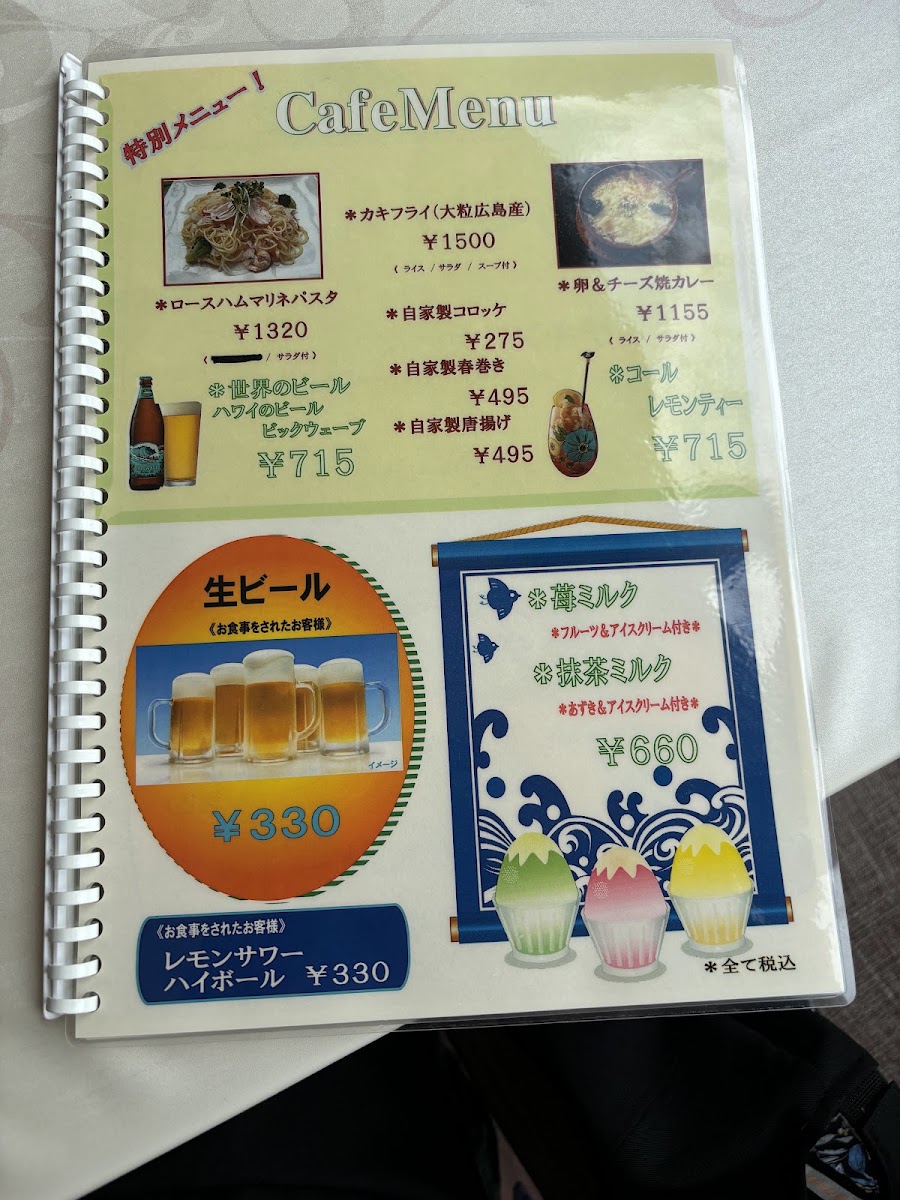 特別メニュー！
CafeMenu
＊カキフライ(大粒広島産)
￥1500
( ライス / サラダ / スープ付 )
＊ロースハムマリネパスタ
￥1320
( / サラダ付 )
＊卵＆チーズ焼カレー
￥1155
( ライス / サラダ付 )
＊自家製コロッケ
￥275
＊自家製春巻き
￥495
＊自家製唐揚げ
￥495
＊世界のビール
ハワイのビール
ビックウェーブ
￥715
＊コール
レモンティー
￥715
生ビール
《お食事をされたお客様》
イメージ
￥330
《お食事をされたお客様》
レモンサワー
ハイボール ￥330
＊苺ミルク
＊フルーツ＆アイスクリーム付き＊
＊抹茶ミルク
＊あずき＆アイスクリーム付き＊
￥660
＊全て税込